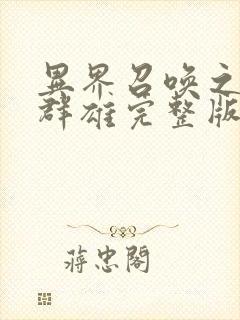 異界召喚之
群雄完整版
蔣忠閣